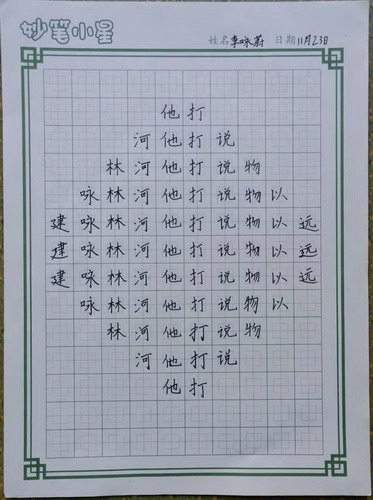 妙笔小星
姓名 李咏蔚 日期 11月23日
他打
河他打说
林河他打说物
咏林河他打说物以
建咏林河他打说物以远
建咏林河他打说物以远
建咏林河他打说物以远
咏林河他打说物以
林河他打说物
河他打说
他打